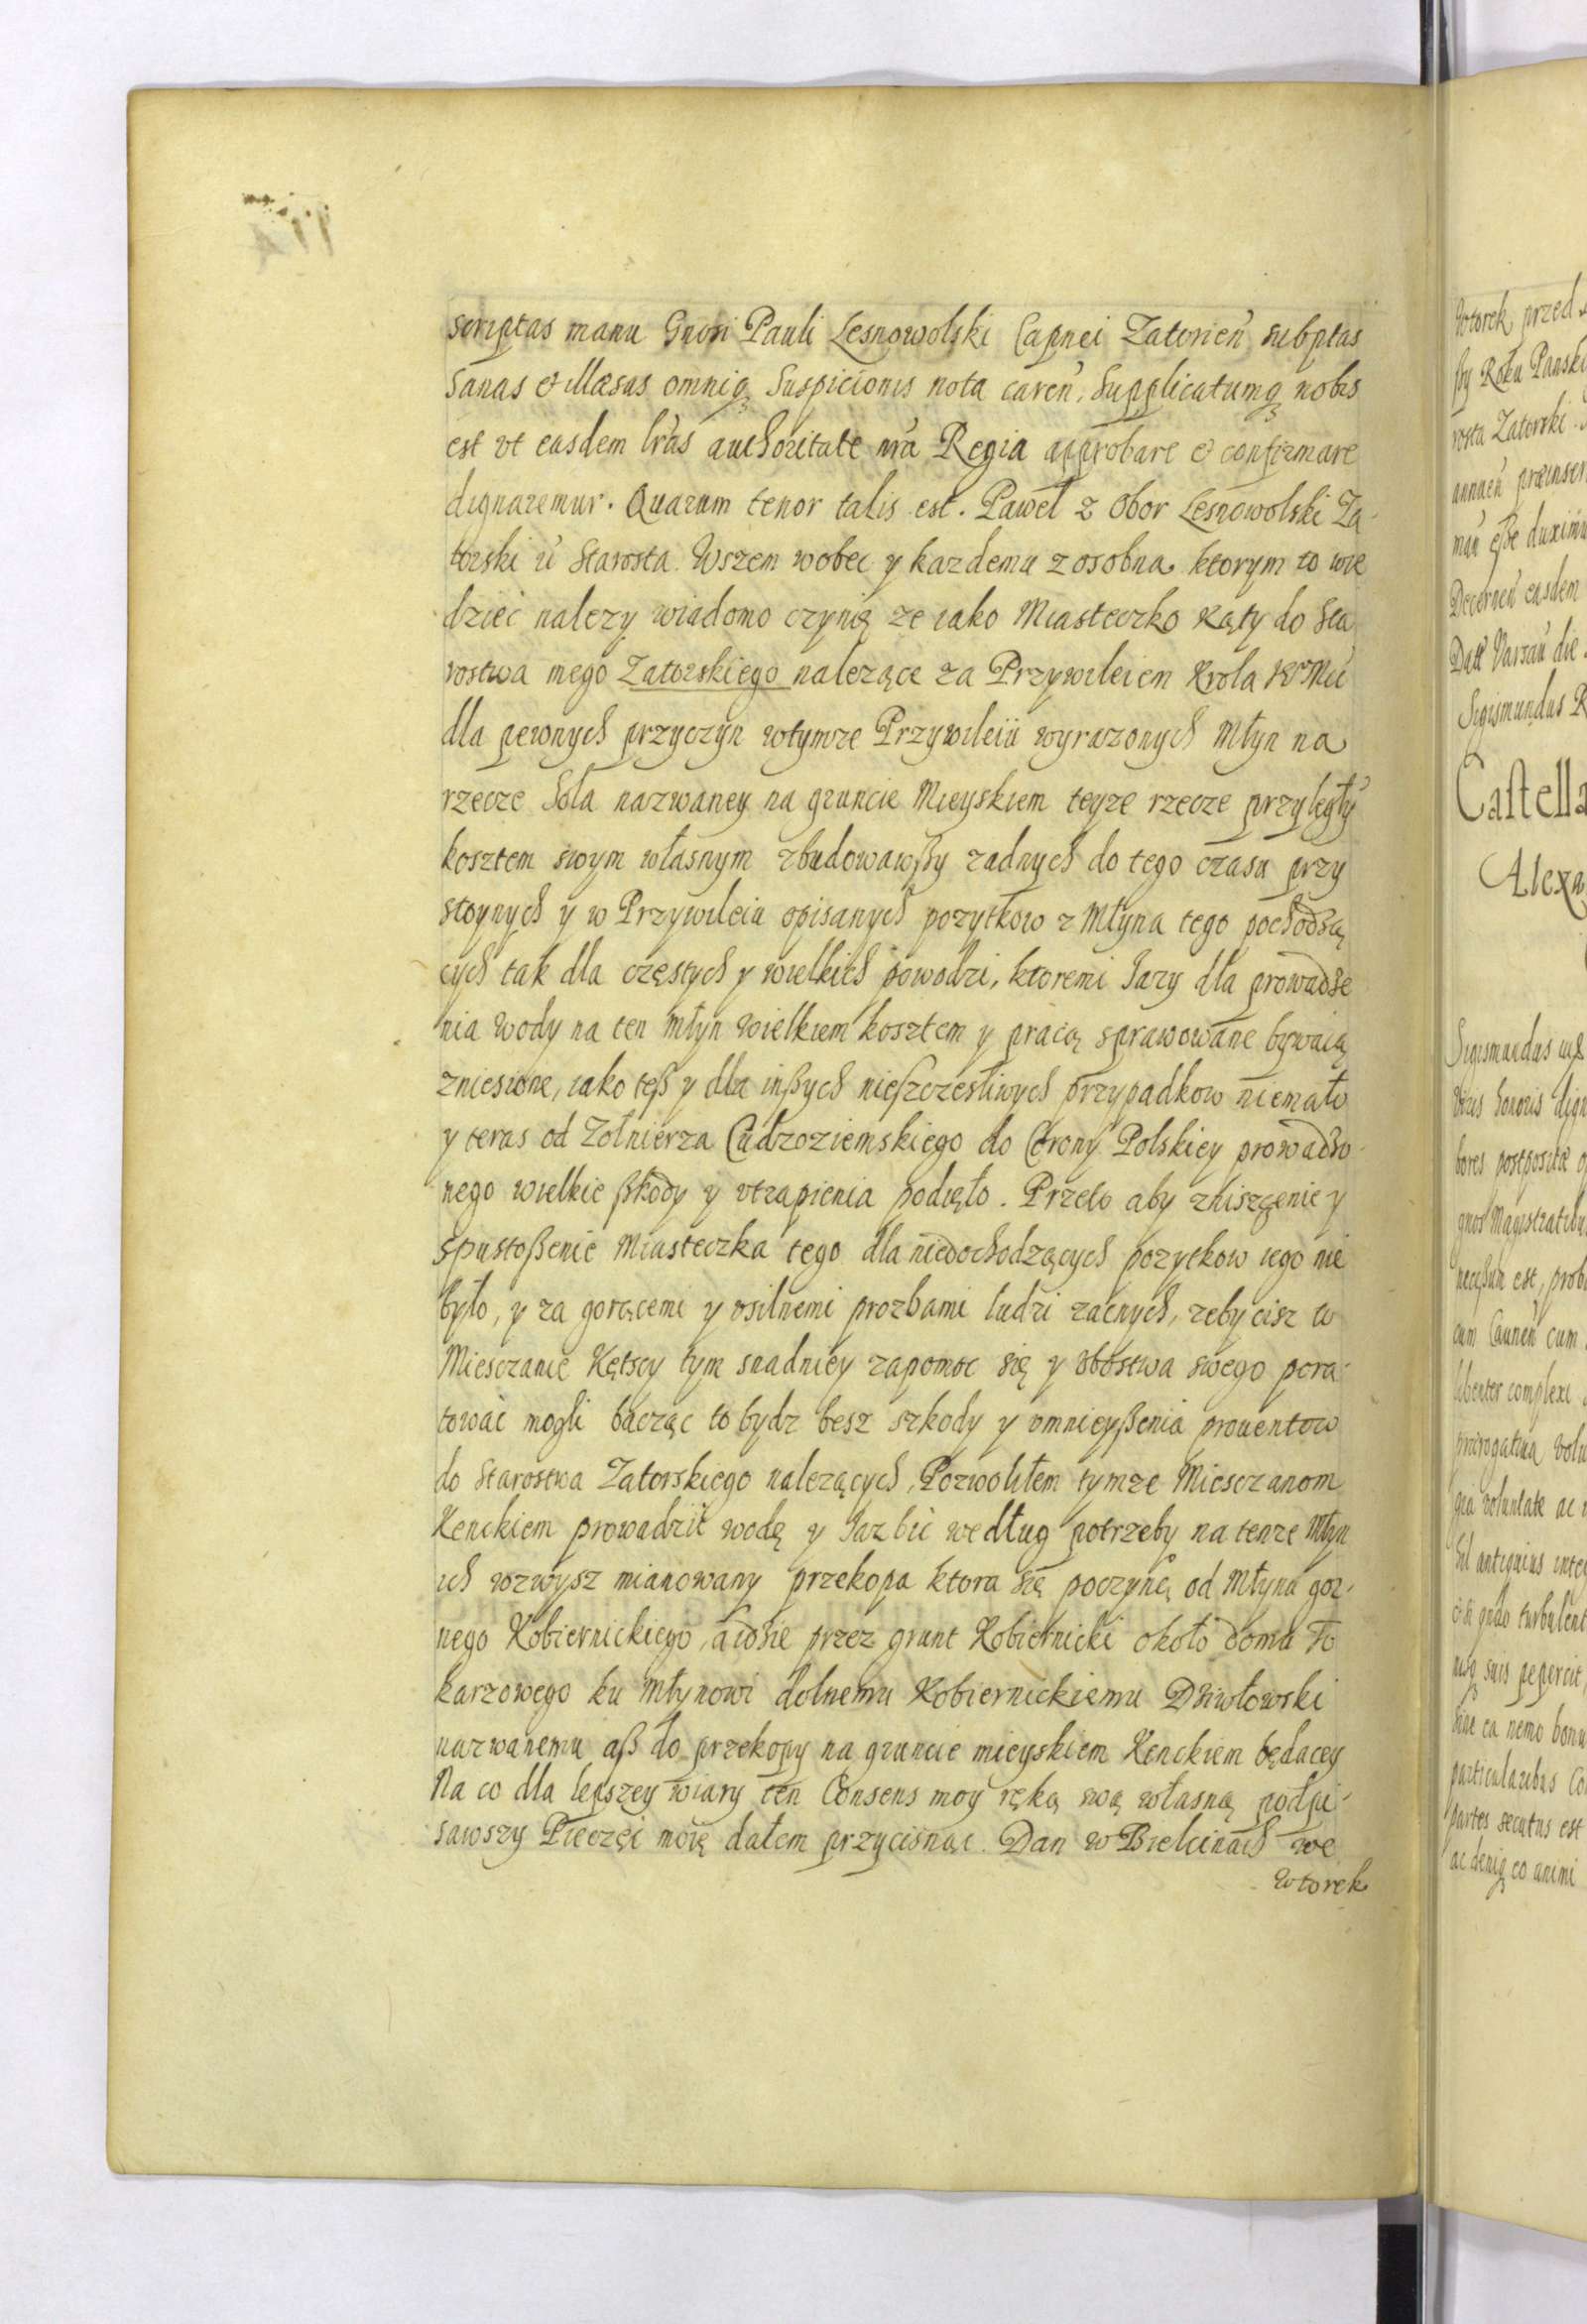 scriptas manu Gnosi Pauli Lesnowolski Capnei Zatorień subptas
Sanas et illæsas omniq Suspicionis nota careń, Supplicatumq nobis
est vt easdem lras authoritate nra Regia approbare et confirmare
dignaremur. Quarum tenor talis est. Paweł z Obor Lesnowolski Za-
torski Starosta. Wszem wobec y kazdemu z osobna ktorym to wie
dzieć nalezy wiadomo czynię ze iako Miasteczko Kęty do Sta
rostwa mego Zatorskiego nalezące za Przywileiem Krola
dla pewnych przyczyn wtymze Przywileiu wyrazonych Młyn na
rzecze Soła nazwaney na gruncie Mieyskiem teyze rzecze przyległÿ
kosztem swym własnym zbudowawßy zadnych do tego czasu przy
stoynych y w Przywileiu opisanych pozytkow z Młyna tego pochodzą
cych tak dla częstych y wielkich powodzi, ktoremi Jazy dla prowadze
nia wody na ten Młyn wielkiem kosztem y pracą sprawowane bywaią
zniesione, iako teß y dla inßych nieszczesliwych przypadkow niemało
y teras od Zołnierza Cudzoziemskiego do Corony Polskiey prowadzo-
nego wielkie ßkody y vtrapienia podięło. Przeto aby zniszczenie y
spustoßenie Miasteczka tego dla niedochodzących pozytkow iego nie
było, y za gorącemi y vsilnemi prozbami ludzi zacnych, zeby cisz to
Miesczanie Kętscy tym snadniey zapomoc się y vbostwa swego pora-
tować mogli bacząc to bydz besz szkody y vmnieyßenia prouentow
do Starostwa Zatorskiego nalezących, Pozwoliłem tymze Miesczanom
Kenckiem prowadzić wodę y Jaz bić według potrzeby na tenze Młyn
ich wzwysz mianowany przekopa ktora się poczyna od Młyna gor-
nego Kobiernickiego, a idzie przez grunt Kobiernicki około domu To
karzowego ku Młynowi dolnemu Kobiernickiemu Dziwłowski
nazwanemu aß do przekopy na gruncie mieyskiem Kenckiem będacey
Na co dla lepszey wiary ten Consens moy ręką swą własną podpi-
sawszy Pieczęć moię dałem przycisnąc. Dan w Bielinach we
wtorek
Wtorek przed
ßy Roku Panski
rosta Zatorski
annaeń præinser
mań eße duximu
Decerneń easdem
Datt Varsau die
Sigismundus R
Castella
Alexa
Sigismundus
honoris dign
bores postposita
gnos Magistratibu
neceßum est, prob
cum Cauneń cum
libenter complexi
prærogatiua volu
gra voluntate ac
antiquius inte
turbulent
suis pepercit
sine ea nemo bonu
particularibus Co
partes secutus est
ac deniq eo animi